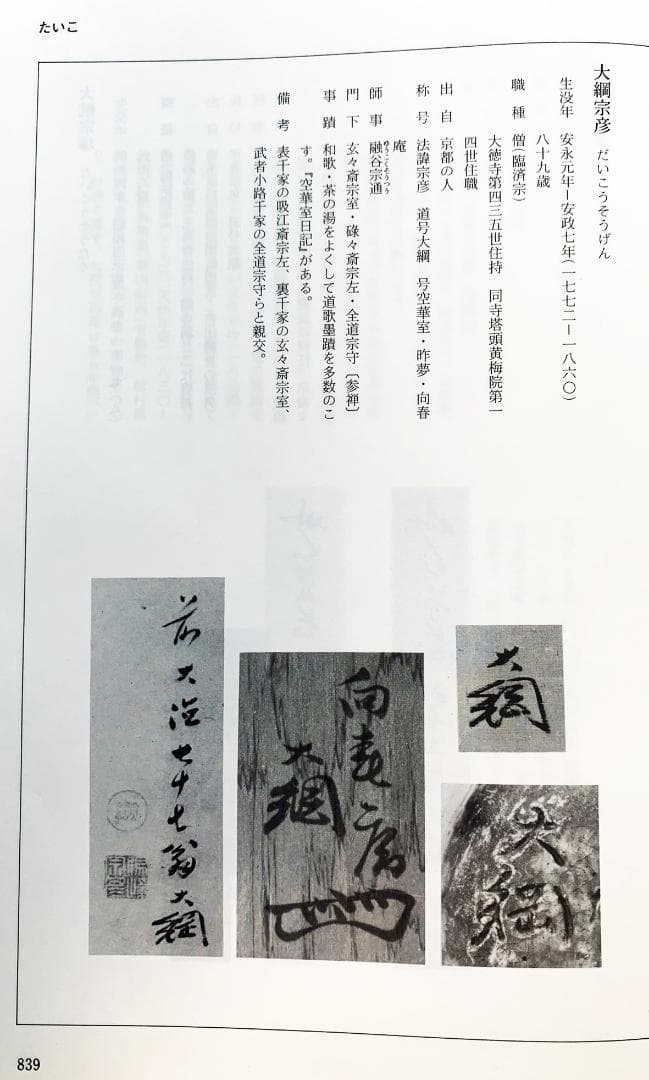 たいこ
大綱宗彦 だいこうそうげん
生没年 安永元年ー安政七年(一七七二ー一八六〇)
八十九歳
職種 僧(臨済宗)
大徳寺第四三五世住持 同寺塔頭黄梅院第一
四世住職
出自 京都の人
称号 法諱宗彦 道号大綱 号空華室・昨夢・向春
庵
師事 融谷宗通
ゆうこくそうつう
門下 玄々斎宗室・碌々斎宗左・全道宗守〔参禅〕
事蹟 和歌・茶の湯をよくして道歌墨蹟を多数のこ
す。『空華室日記』がある。
備考 表千家の吸江斎宗左、裏千家の玄々斎宗室、
武者小路千家の全道宗守らと親交。
大綱
大綱
向春
大綱
前大徳七十七翁大綱
839